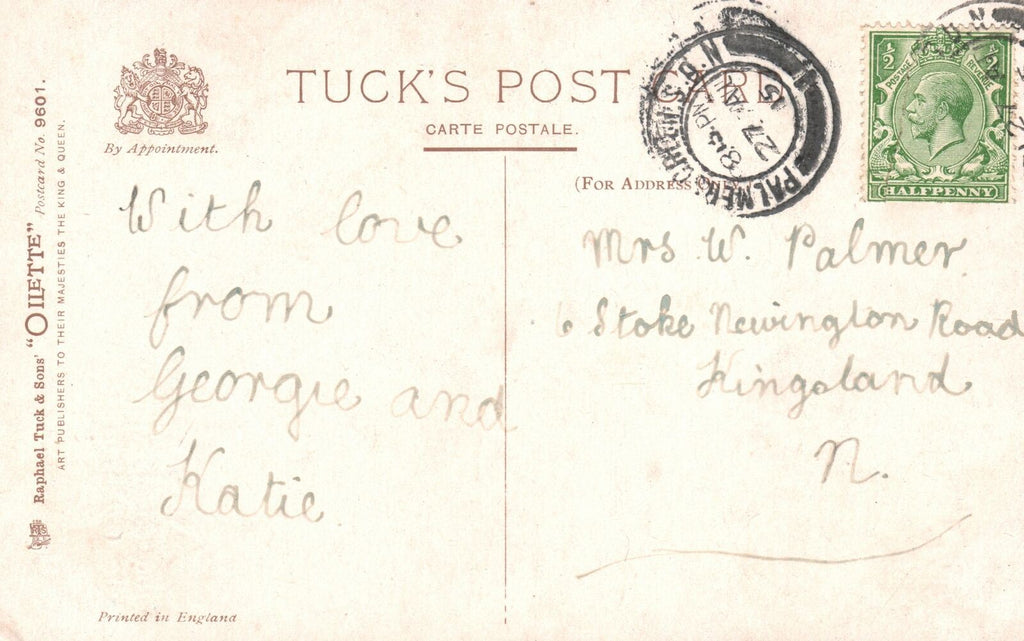 TUCK'S POST CARD
CARTE POSTALE.
By Appointment.
(FOR ADDRESS ONLY.)
Raphael Tuck & Sons' "OILETTE" Postcard No. 9601.
ART PUBLISHERS TO THEIR MAJESTIES THE KING & QUEEN.
With love
from
Georgie and
Katie
Mrs W. Palmer
6 Stoke Newington Road
Kingsland
N.
PALMERS GREEN S.O. N.
8.15 PM
27 JAN
15
1/2
1/2
POSTAGE
REVENUE
HALFPENNY
Printed in England